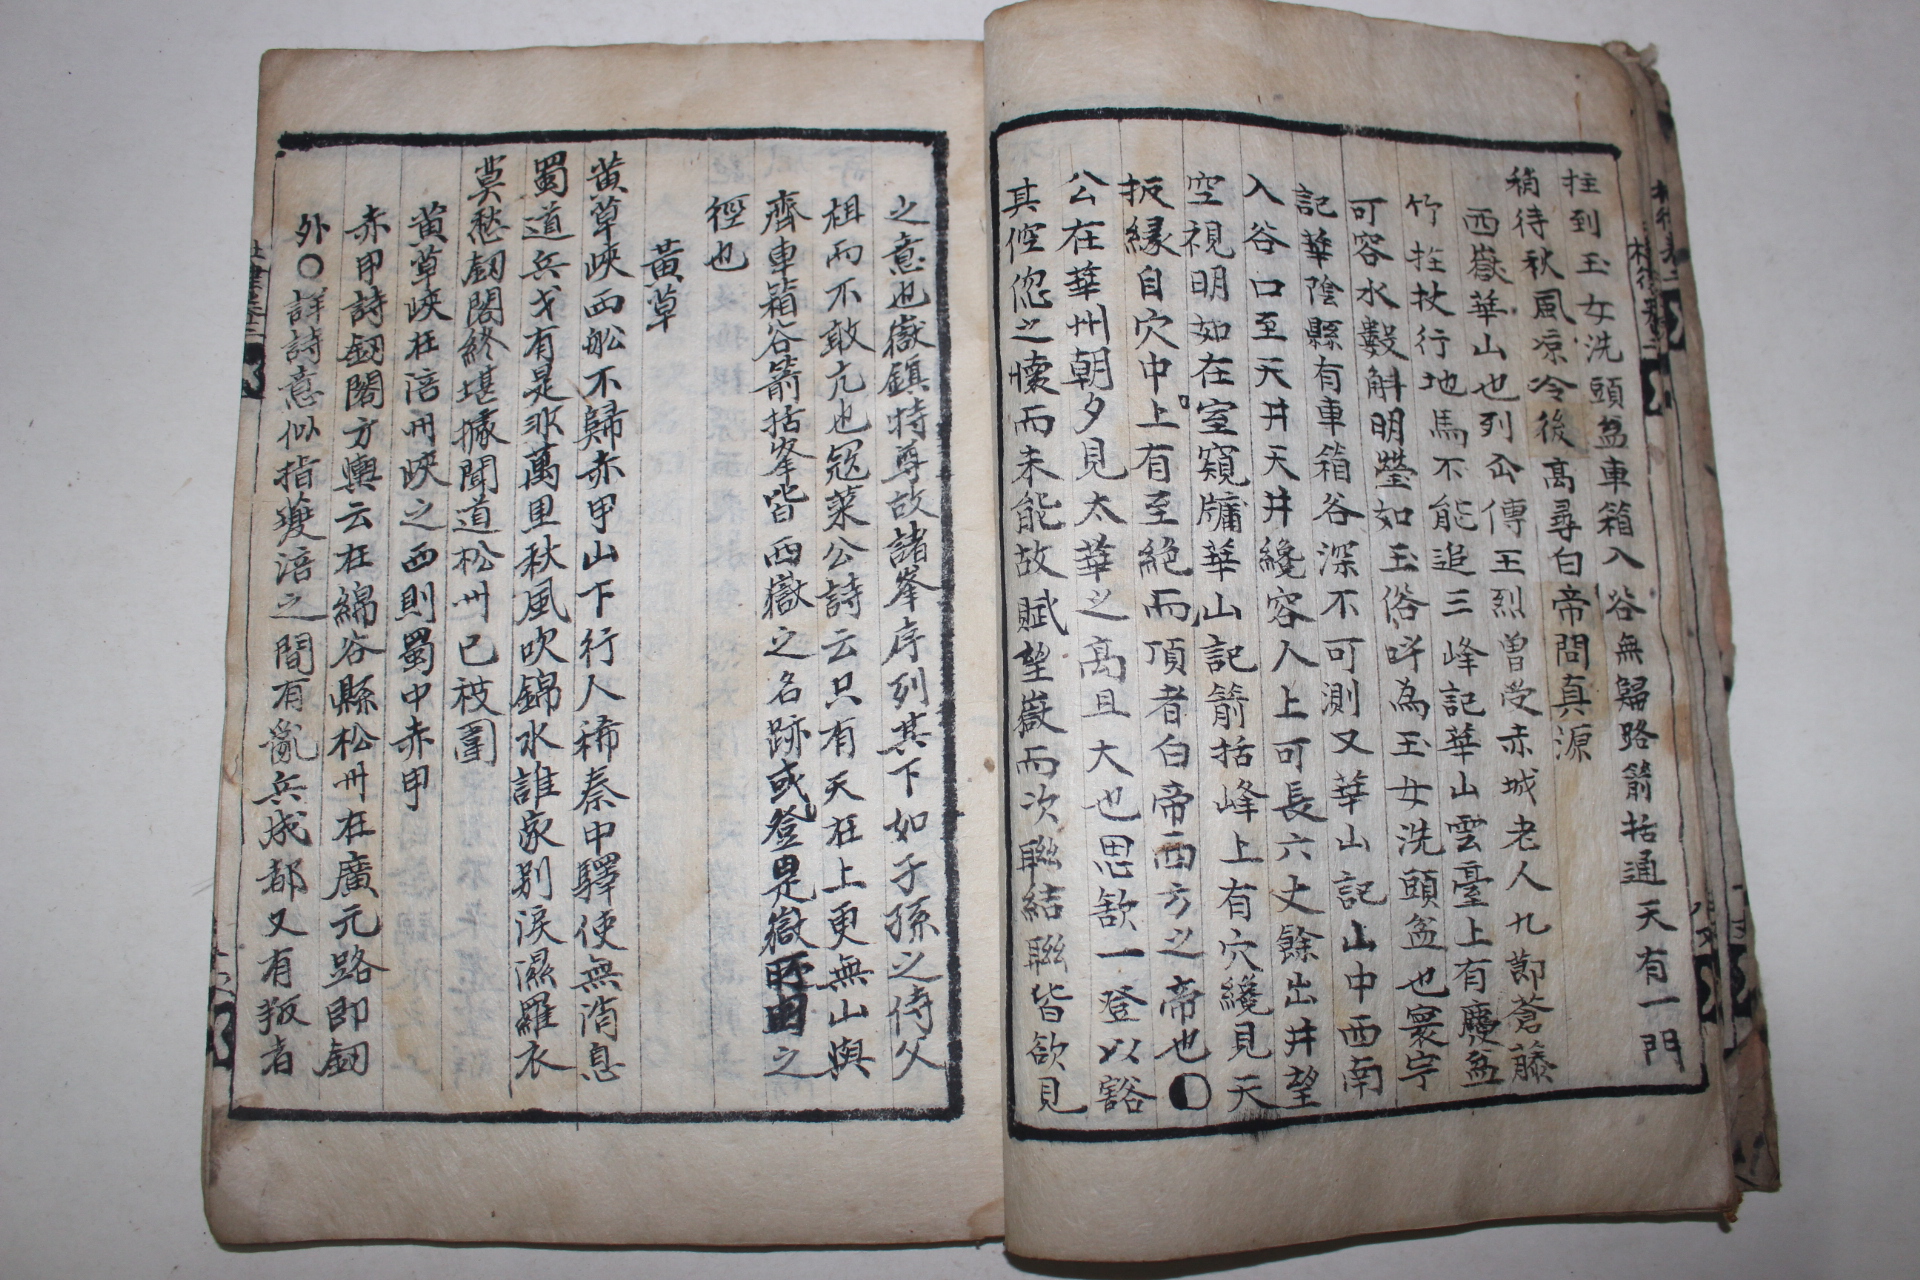 拄到玉女洗頭盆車箱入谷無歸路箭括通天有一門
稍待秋風凉冷後高尋白帝問真源
西嶽華山也列仚傳王烈曽受赤城老人九節蒼藤
竹拄杖行地馬不能追三峰記華山雲臺上有
盆可容水數斛明瑩如玉俗呼為玉女洗頭盆也寰宇
記華陰縣有車箱谷深不可測又華山記山中西南
入谷口至天井天井纔容人上可長六丈餘出井望
空視明如在室窺牖華山記箭括峰上有穴纔見天
扳縁自穴中上有至絶而頂者白帝西方之帝也
公在華州朝夕見太華之高且大也思欲一登以豁
其倥偬之懷而未能故賦望嶽而次聮結聮皆欲見
之意也嶽鎮特尊故諸峯序列其下如子孫之侍父
祖而不敢亢也冦萊公詩云只有天在上更無山與
齊車箱谷箭括峯皆西嶽之名跡或登是嶽所由之
徑也
黃草
黃草峽西舩不歸赤甲山下行人稀秦中驛使無消息
蜀道兵戈有是非萬里秋風吹錦水誰家别淚濕羅衣
莫愁劔閣終堪據聞道松州已被圍
黃草峽在涪州峽之西則蜀中赤甲
赤甲詩劔閣方輿云在綿谷縣松州在廣元路即劔
外〇詳詩意似指夔涪之間有亂兵成都又有叛者